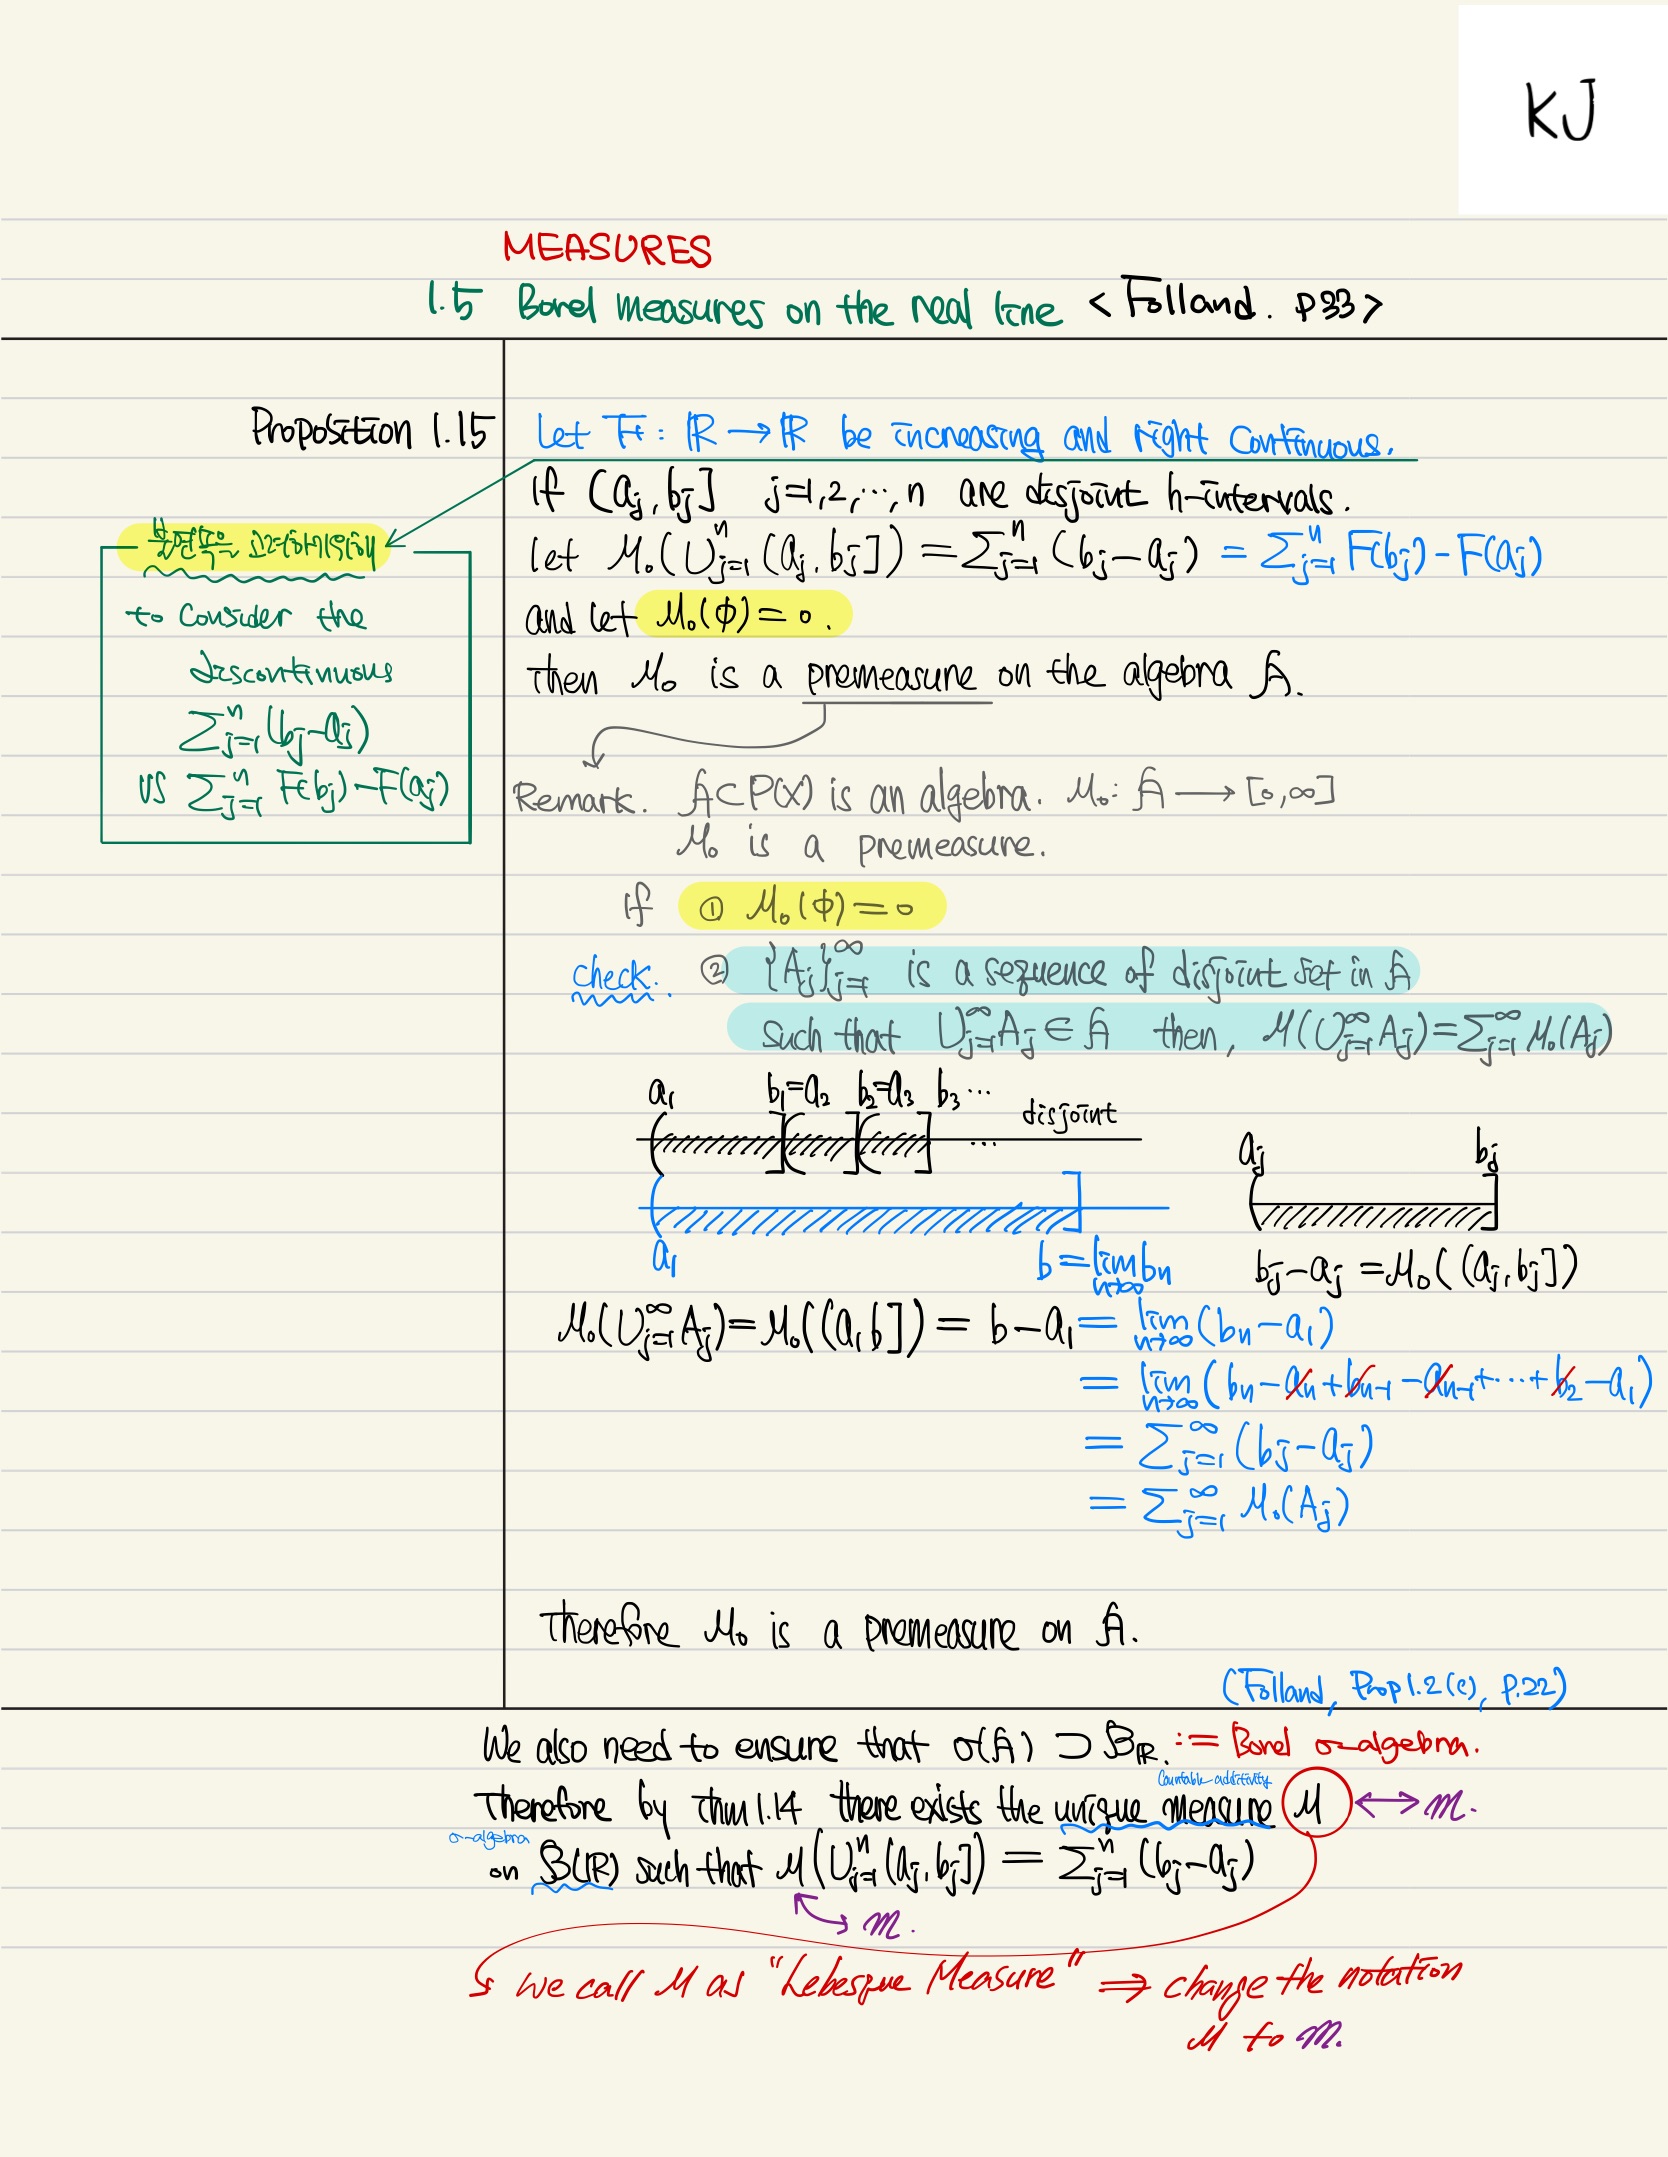 KJ
MEASURES
1.5 Borel measures on the real line <Folland. p33>
Proposition 1.15
Let F: ℝ → ℝ be increasing and right continuous.
If (aⱼ, bⱼ] j=1,2,⋯,n are disjoint h-intervals.
let μ₀(∪ⱼ₌₁ⁿ (aⱼ, bⱼ]) = ∑ⱼ₌₁ⁿ (bⱼ-aⱼ) = ∑ⱼ₌₁ⁿ F(bⱼ)-F(aⱼ)
and let μ₀(ϕ)=0.
Then μ₀ is a premeasure on the algebra 𝒜.
불연속도 고려하기위해
to consider the
discontinuous
∑ⱼ₌₁ⁿ (bⱼ-aⱼ)
vs ∑ⱼ₌₁ⁿ F(bⱼ)-F(aⱼ)
Remark. 𝒜⊂P(X) is an algebra. μ₀: 𝒜 → [0,∞]
μ₀ is a premeasure.
If ① μ₀(ϕ)=0
check. ② {Aⱼ}ⱼ₌₁^∞ is a sequence of disjoint set in 𝒜
such that ∪ⱼ₌₁^∞ Aⱼ ∈ 𝒜 then, μ(∪ⱼ₌₁^∞ Aⱼ)=∑ⱼ₌₁^∞ μ₀(Aⱼ)
a₁ b₁=a₂ b₂=a₃ b₃ ⋯
disjoint
⋯
aⱼ bⱼ
a₁ b=lim_{n→∞} bₙ
bⱼ-aⱼ = μ₀((aⱼ, bⱼ])
μ₀(∪ⱼ₌₁^∞ Aⱼ)=μ₀((a₁b])= b-a₁ = lim_{n→∞} (bₙ-a₁)
= lim_{n→∞} (bₙ-aₙ+bₙ₋₁-aₙ₋₁+⋯+b₂-a₁)
= ∑ⱼ₌₁^∞ (bⱼ-aⱼ)
= ∑ⱼ₌₁^∞ μ₀(Aⱼ)
Therefore μ₀ is a premeasure on 𝒜.
(Folland, Prop1.2(c), p.22)
We also need to ensure that σ(𝒜) ⊃ ℬ_ℝ. := Borel σ-algebra.
Countable additivity
Therefore by Thm1.14 there exists the unique measure μ ↔ m.
σ-algebra
on ℬ(ℝ) such that μ(∪ⱼ₌₁ⁿ (aⱼ, bⱼ]) = ∑ⱼ₌₁ⁿ (bⱼ-aⱼ)
m.
we call μ as "Lebesgue Measure" ⇒ change the notation
μ to m.